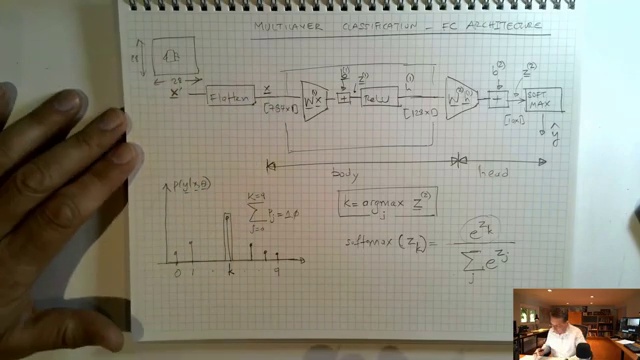 MULTILAYER CLASSIFICATION - FC ARCHITECTURE
28
28
X
Flatten
x
[784x1]
W⁽¹⁾x
b⁽¹⁾
+
z⁽¹⁾
ReLU
h⁽¹⁾
[128x1]
W⁽²⁾h⁽¹⁾
b⁽²⁾
+
z⁽²⁾
[10x1]
SOFT
MAX
ŷ
body
head
P(y|x,θ)
K=9
∑ Pj = 1.0
j=0
0 1 . k 9
k = argmax z⁽²⁾
j
softmax (z_k) = e^{z_k}
∑ e^{z_j}
j